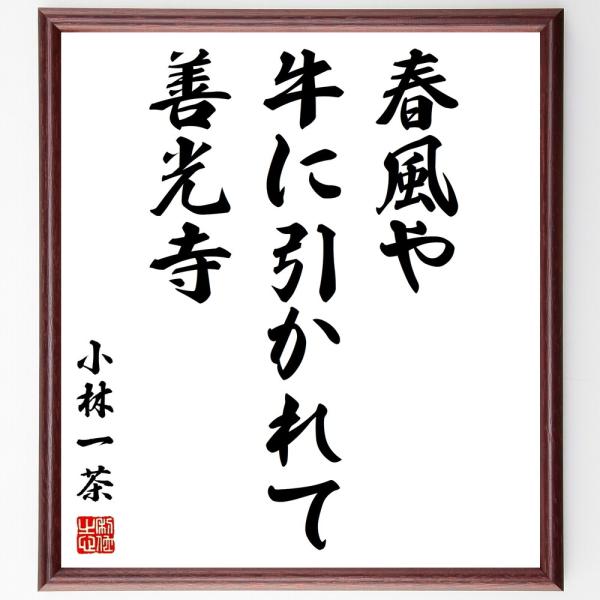 春風や
牛に引かれて
善光寺
小林一茶